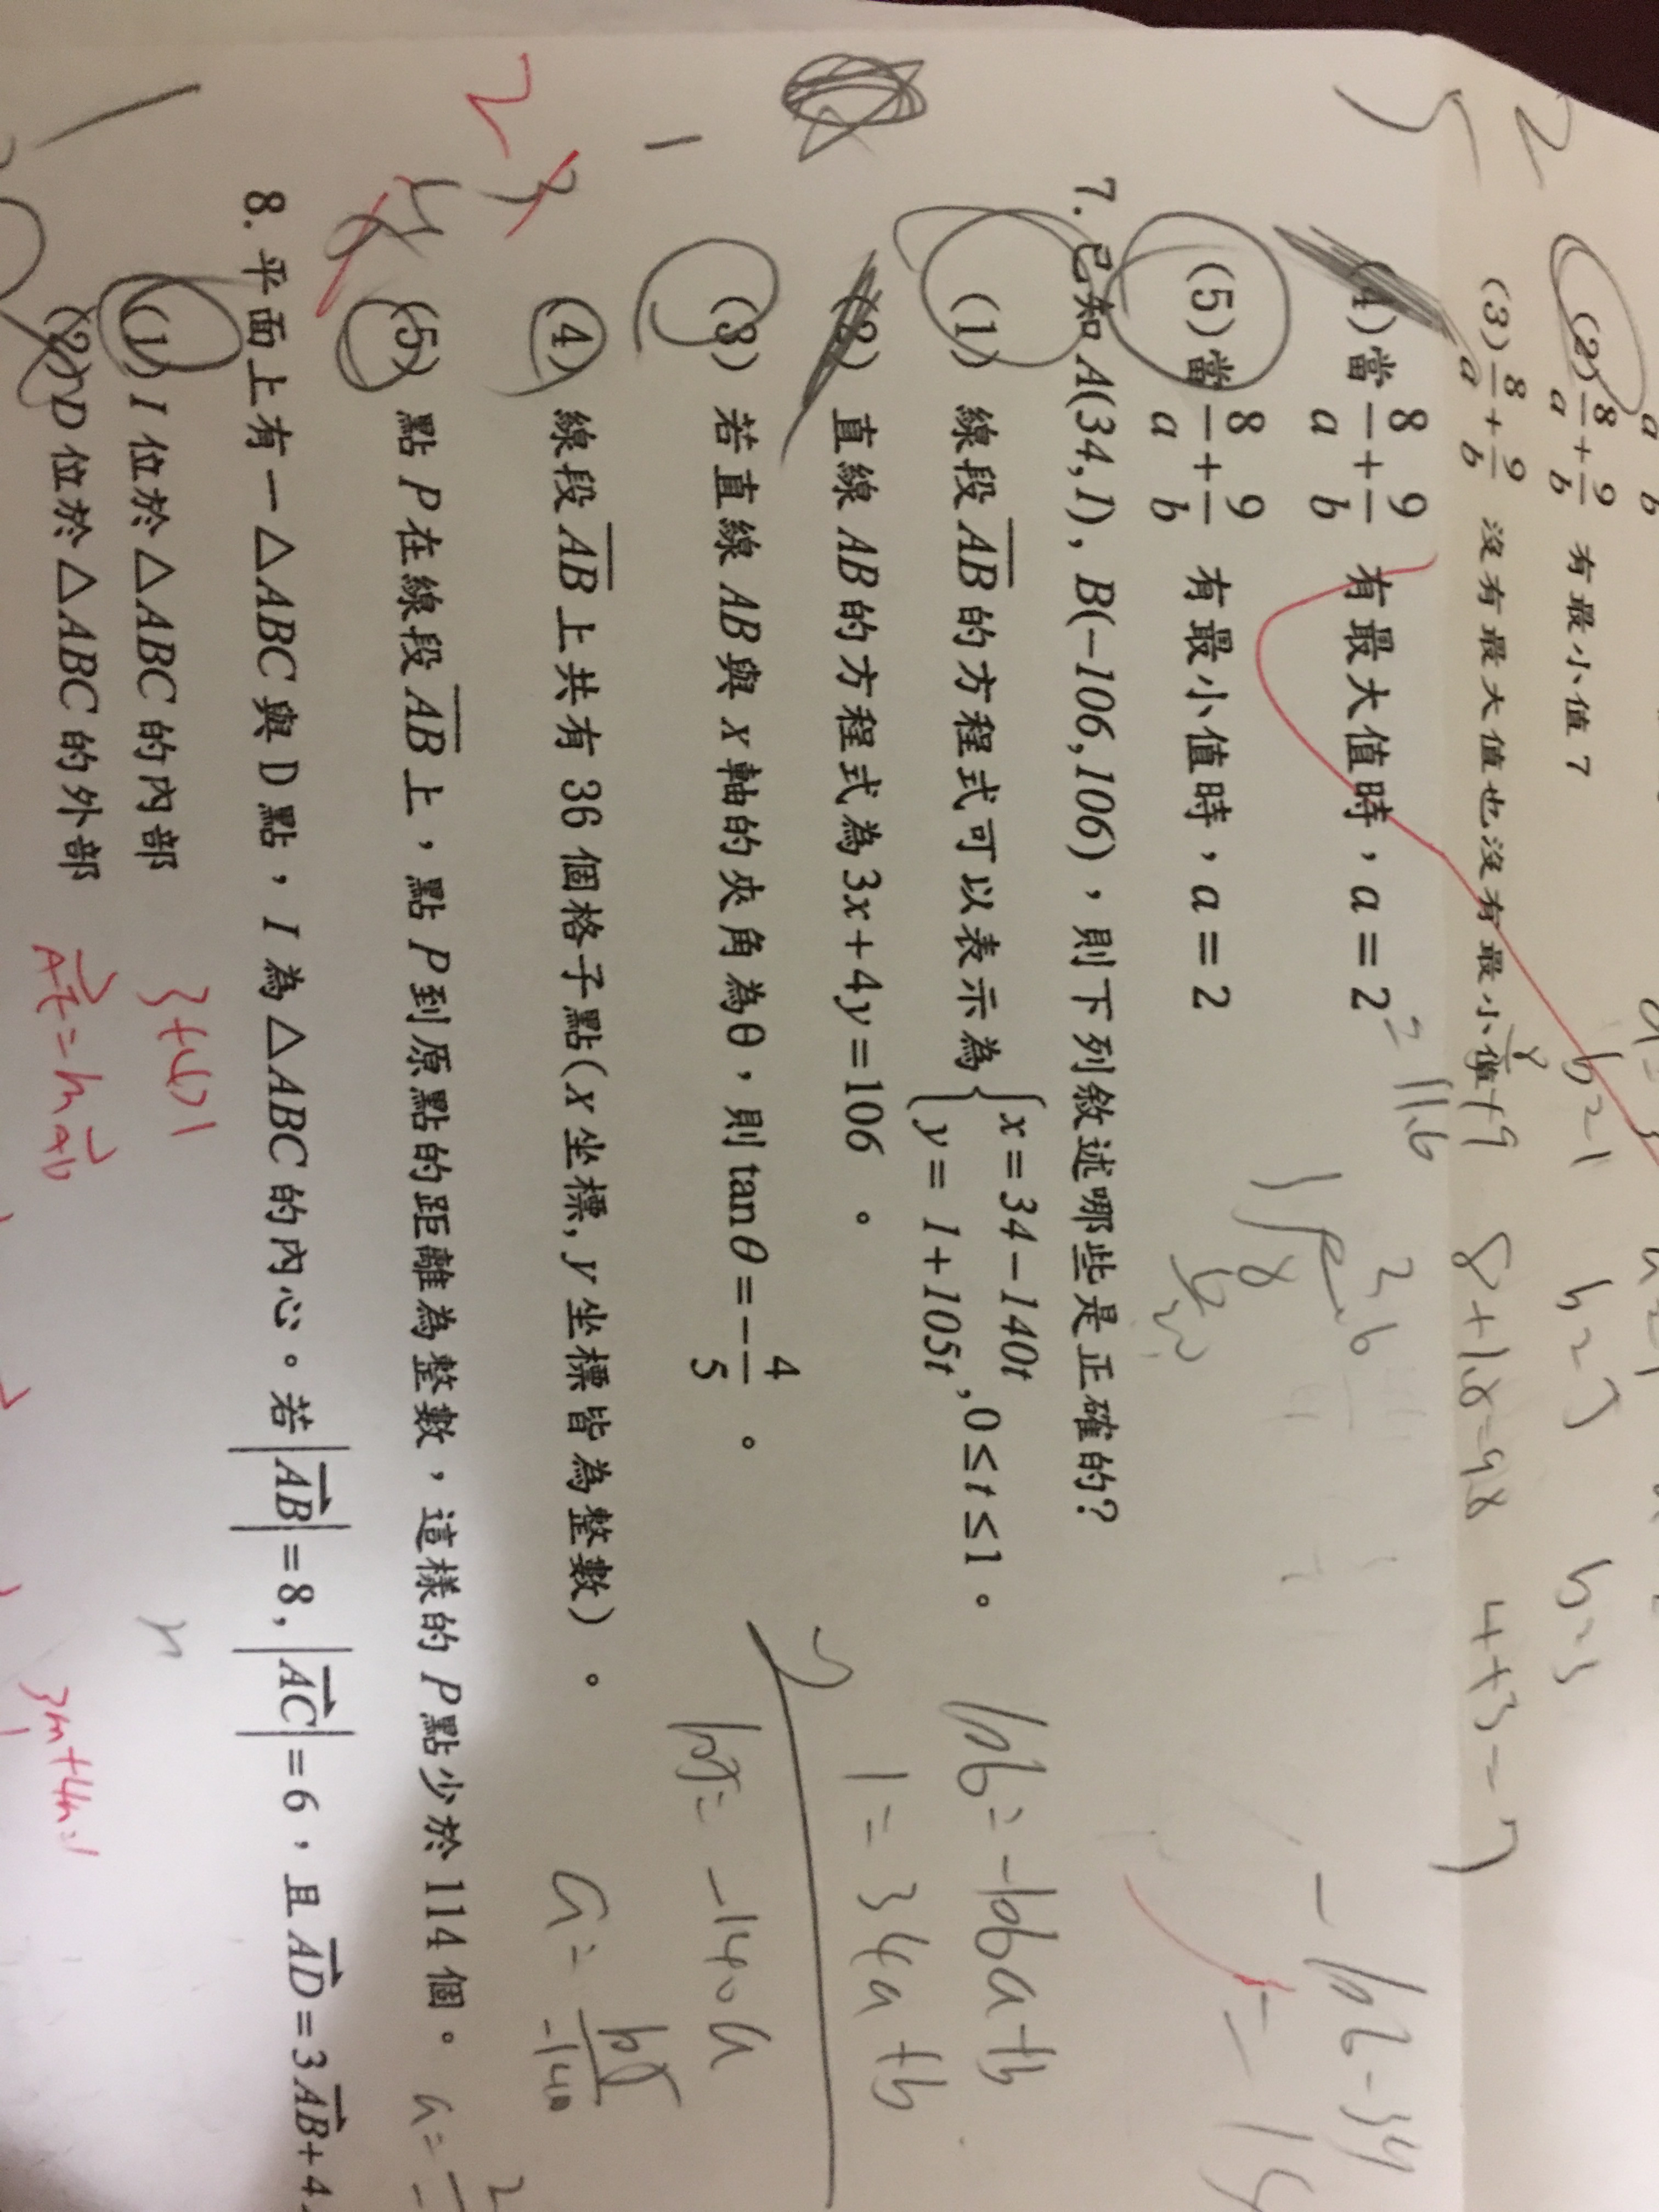 (2) 8/a + 9/b 有最小值 7
(3) 8/a + 9/b 沒有最大值也沒有最小值
(4) 當 8/a + 9/b 有最大值時，a = 2
(5) 當 8/a + 9/b 有最小值時，a = 2
7. 已知 A(34,1), B(-106,106)，則下列敘述哪些是正確的?
(1) 線段 AB 的方程式可以表示為 { x = 34 - 140t
y = 1 + 105t , 0 ≤ t ≤ 1。
(2) 直線 AB 的方程式為 3x + 4y = 106 。
(3) 若直線 AB 與 x 軸的夾角為θ，則 tan θ = - 4/5 。
(4) 線段 AB 上共有 36 個格子點(x 坐標, y 坐標皆為整數) 。
(5) 點 P 在線段 AB 上，點 P 到原點的距離為整數，這樣的 P 點少於 114 個。
8. 平面上有一 △ABC 與 D 點，I 為 △ABC 的內心。若 |AB| = 8, |AC| = 6，且 AD = 3AB + 4
(1) I 位於 △ABC 的內部
(2) D 位於 △ABC 的外部
b=1
b=3
8+1.8=9.8
4+3=7
106=-106a+b
1=34a+b
105=-140a
a=105/-140
3+4>1
3m+4n=1